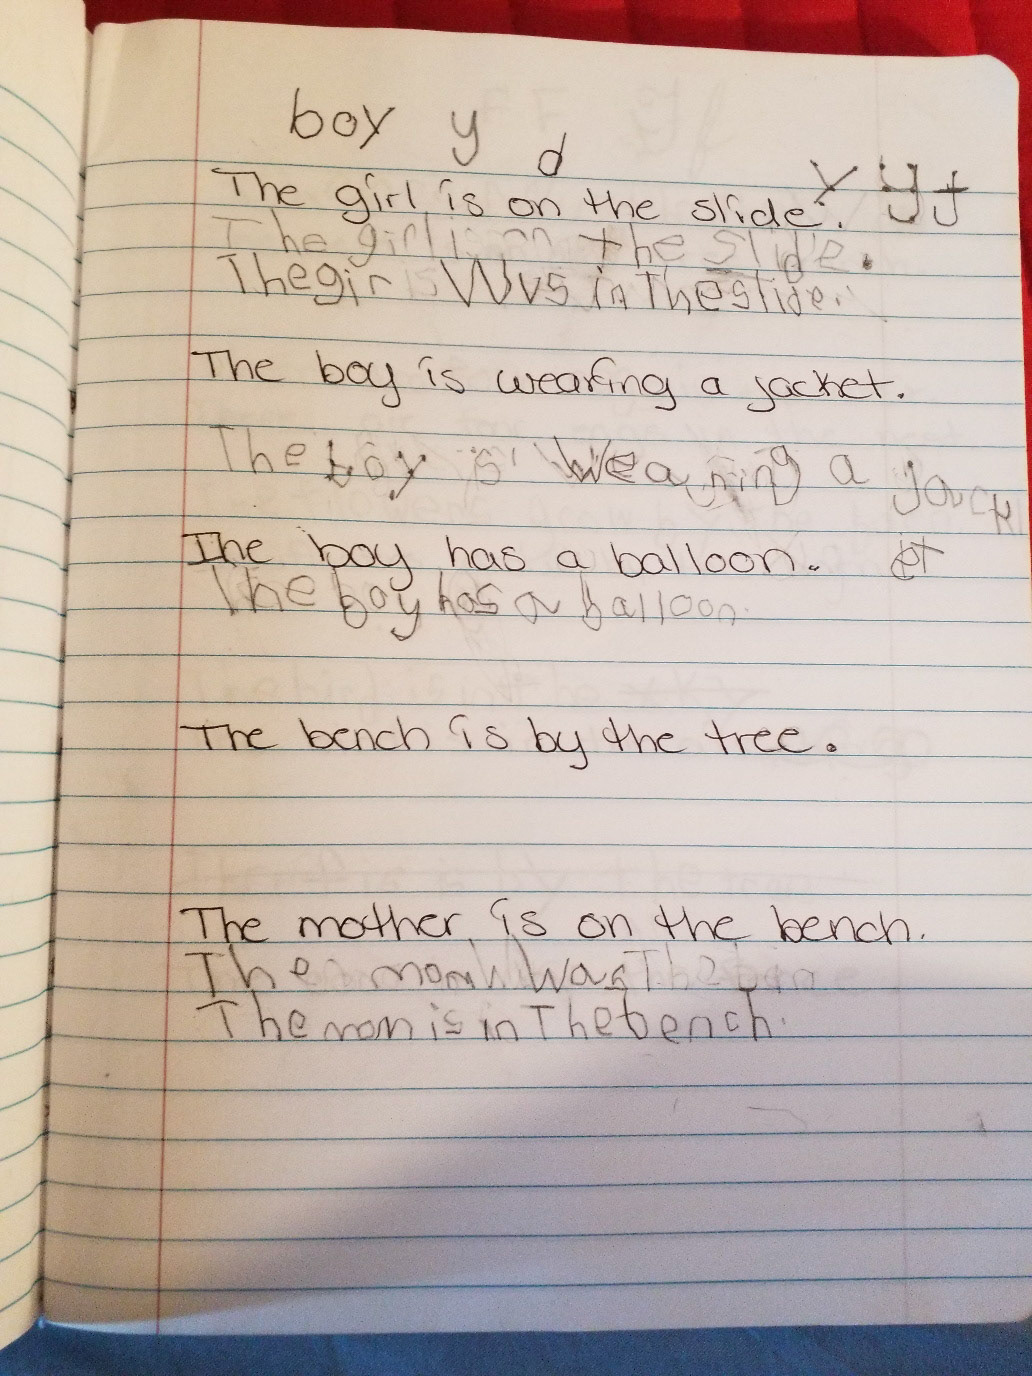 boy y d
The girl is on the slide. y y j
The girl is on the slide.
The gir Wus in The slide.
The boy is wearing a jacket.
The boy is Wearing a jouck
et
The boy has a balloon.
The boy has a balloon.
The bench is by the tree.
The mother is on the bench.
The mom Was The
The mom is in The bench.